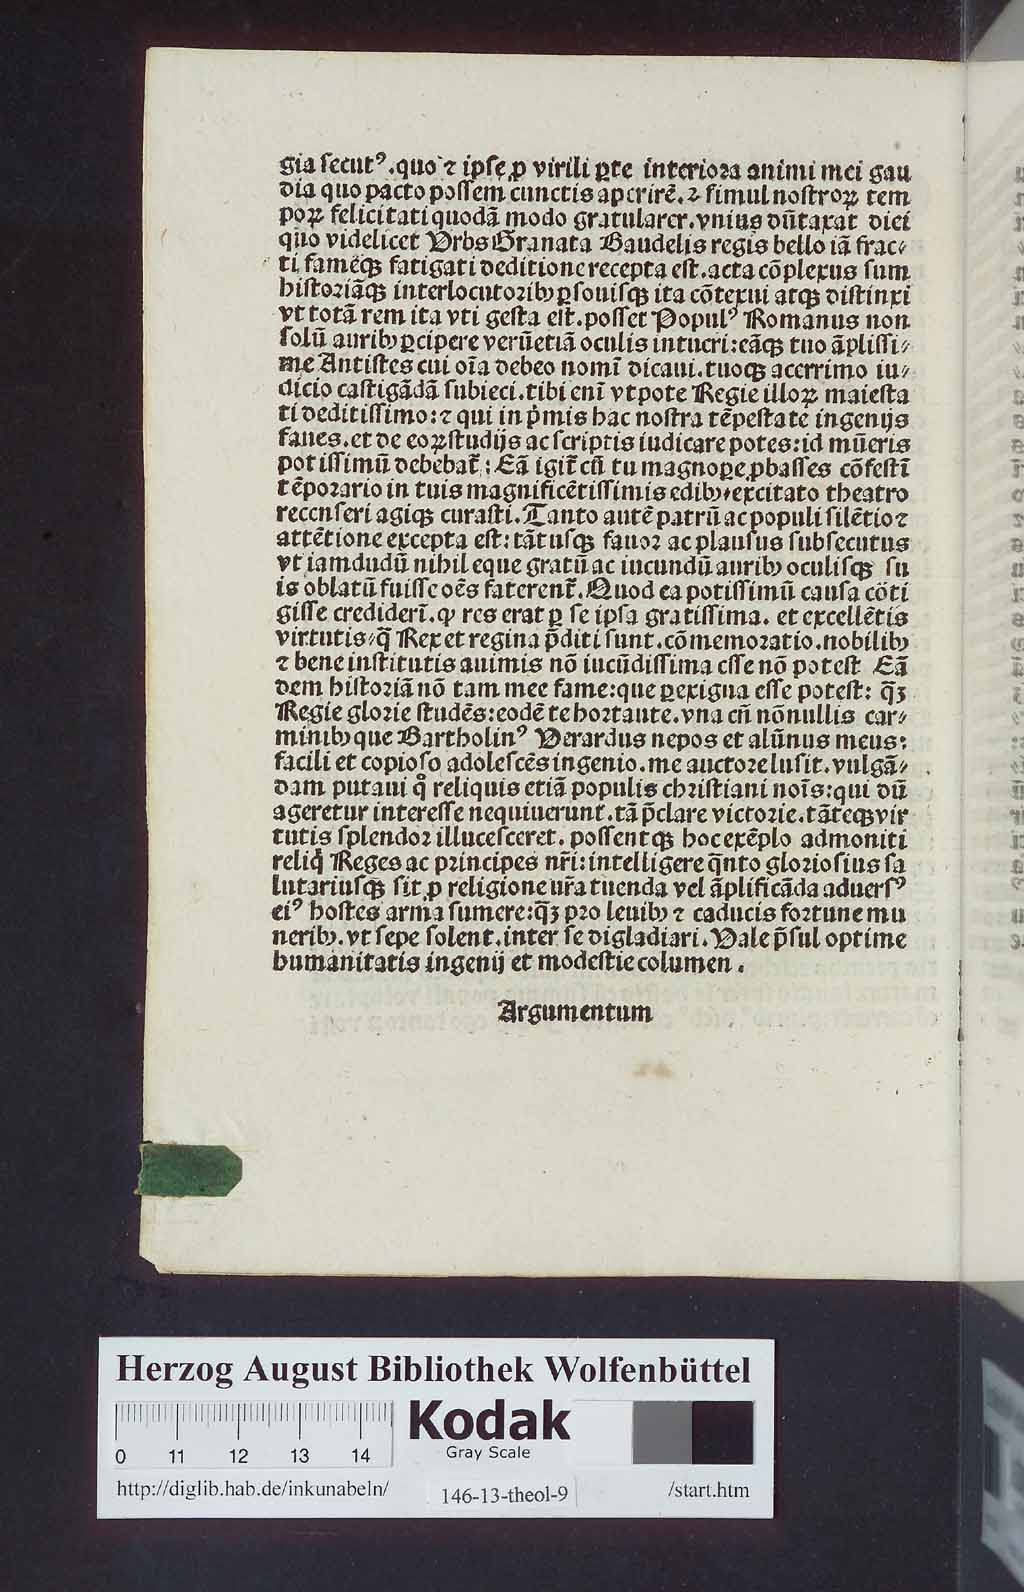 gia secutꝰ.quo ⁊ ipse ꝓ virili ꝑte interiora animi mei gau
dia quo pacto possem cunctis aperirē.⁊ simul nostroꝝ tem
poꝝ felicitati quodā modo gratularer.vnius dūtaxat diei
quo videlicet Vrbs Granata Baudelis regis bello iā frac⸗
ti famēqꝫ fatigati deditione recepta est.acta cōplexus sum
historiāqꝫ interlocutoribꝰ ꝑsonisqꝫ ita cōtexui atqꝫ distinxi
vt totā rem ita vti gesta est.posset Populꝰ Romanus non
solū auribꝰ ꝑcipere verūetiā oculis intueri:eāqꝫ tuo āplissi⸗
me Antistes cui oīa debeo nomī dicaui.tuoqꝫ acerrimo iu⸗
dicio castigādā subieci.tibi enī vtpote Regie illoꝝ maiesta
ti deditissimo:⁊ qui in p̄mis hac nostra tēpestate ingenijs
faues.et de eoꝝ studijs ac scriptis iudicare potes:id mūeris
potissimū debebat̄: Eā igit̄ cū tu magnopeꝝ ꝓbasses cōfestī
tēporario in tuis magnificētissimis edibꝰ⸗excitato theatro
recenseri agiqꝫ curasti.Tanto autē patrū ac populi silētio ⁊
attētione excepta est:tātusqꝫ fauor ac plausus subsecutus
vt iamdudū nihil eque gratū ac iucundū auribꝰ oculisqꝫ su
is oblatū fuisse oēs faterent̄.Quod ea potissimū causa cōti
gisse crediderī.ꝙ res erat ꝑ se ipsa gratissima. et excellētis
virtutis⸗q̄ Rex et regina p̄diti sunt.cōmemoratio.nobilibꝰ
⁊ bene institutis auimis nō iucūdissima esse nō potest Eā
dem historiā nō tam mee fame:que ꝑexigua esse potest: q̄ꝫ
Regie glorie studēs:eodē te hortaute.vna cū nōnullis car⸗
minibꝰ que Bartholinꝰ Verardus nepos et alūnus meus:
facili et copioso adolescēs ingenio.me auctore lusit.vulgā⸗
dam putaui qͦ reliquis etiā populis christiani noīs:qui dū
ageretur interesse nequiuerunt.tā p̄clare victorie.tāteqꝫ vir
tutis splendor illucesceret. possentqꝫ hoc exēplo admoniti
reliq̄ Reges ac principes nr̄i:intelligere q̄nto gloriosius sa
lutariusqꝫ sit ꝓ religione ur̄a tuenda vel āplificāda aduersꝰ
eiꝰ hostes arma sumere:q̄ꝫ pro leuibꝰ ⁊ caducis fortune mu
neribꝰ.vt sepe solent.inter se digladiari.Vale p̄sul optime
humanitatis ingenij et modestie columen.
Argumentum
Herzog August Bibliothek Wolfenbüttel
Kodak
Gray Scale
0 11 12 13 14
http://diglib.hab.de/inkunabeln/ 146-13-theol-9 /start.htm